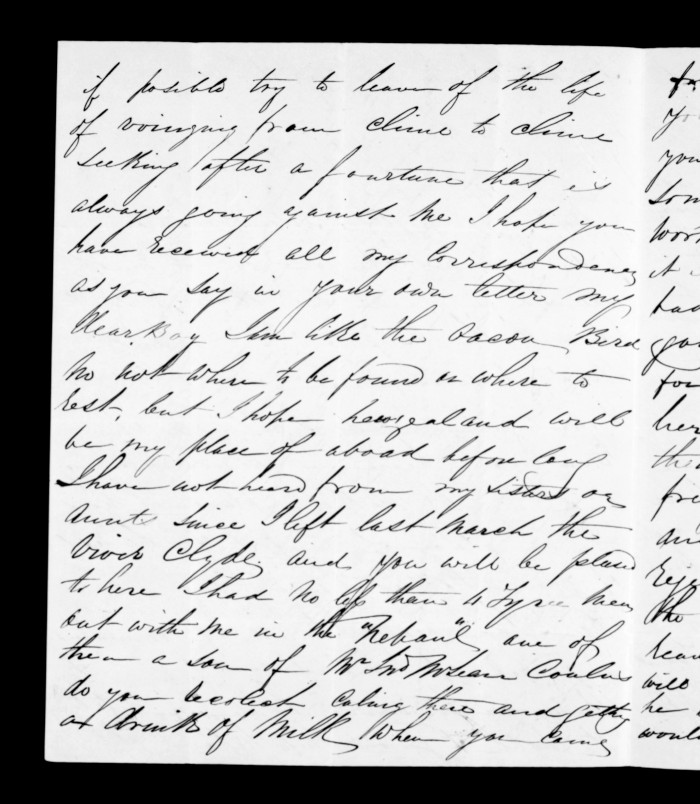 if posible try to leave of the life
of voinging from clime to clime
seeking after a fourtune that is
always going against me I hope you
have received all my Corrispondence
as you say in your own letter my
dear Boy I am like the Bird
no not where to be found or where to
rest, but I hope newzealand will
be my place of aboad before long
I have not heard from my sisters or
aunts since I left last March the
River Clyde. and you will be plased
to here I had no less than 4 Tyree men
out with me in the "Nepaul" one of
them a son of Mr McLean
do you recolect caling there and getting
a drink of Milk when you came